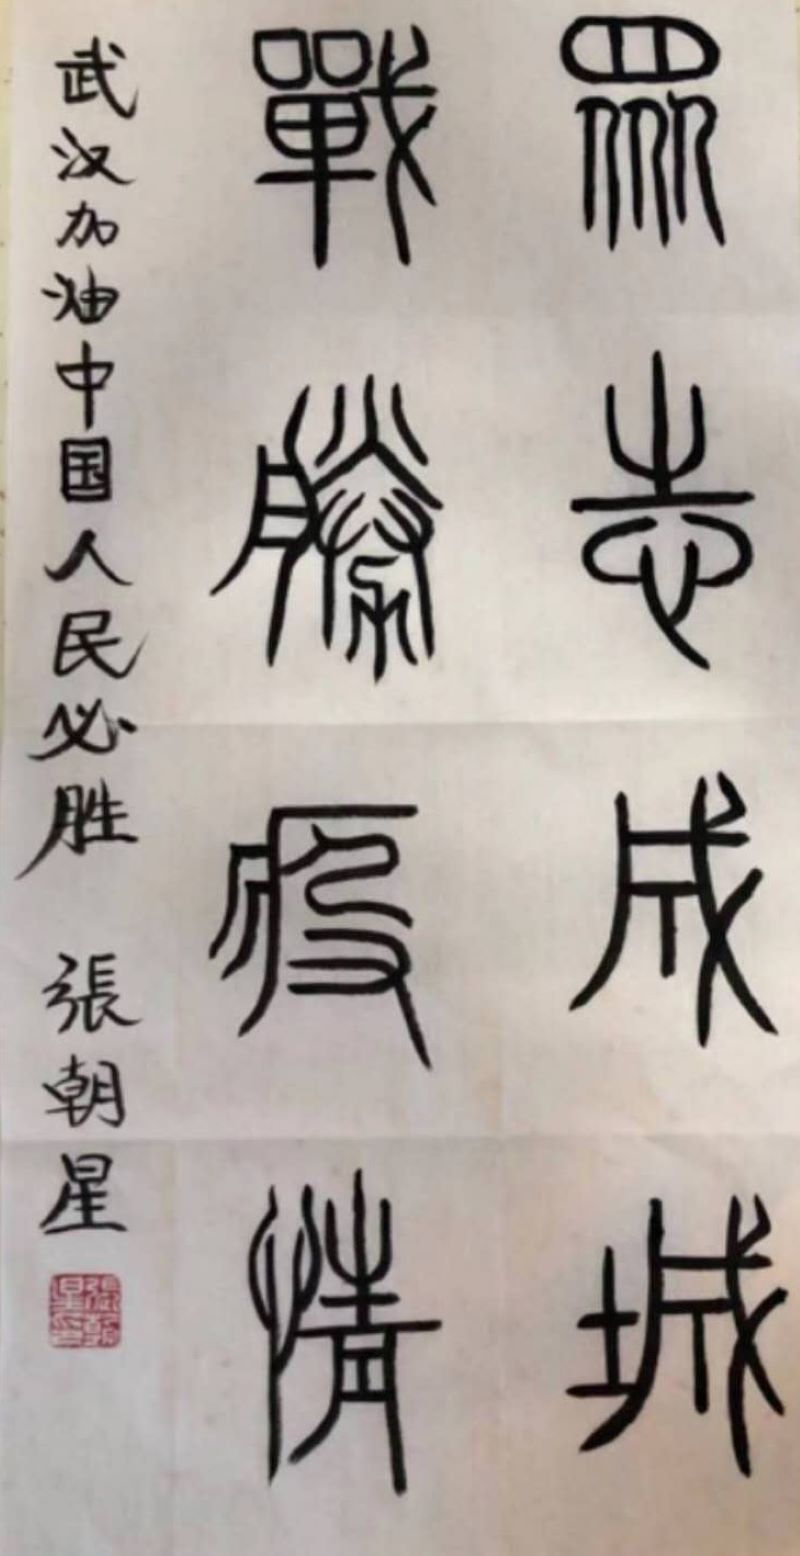 眾志成城
戰勝疫情
武汉加油中国人民必胜 張朝星
張朝星印